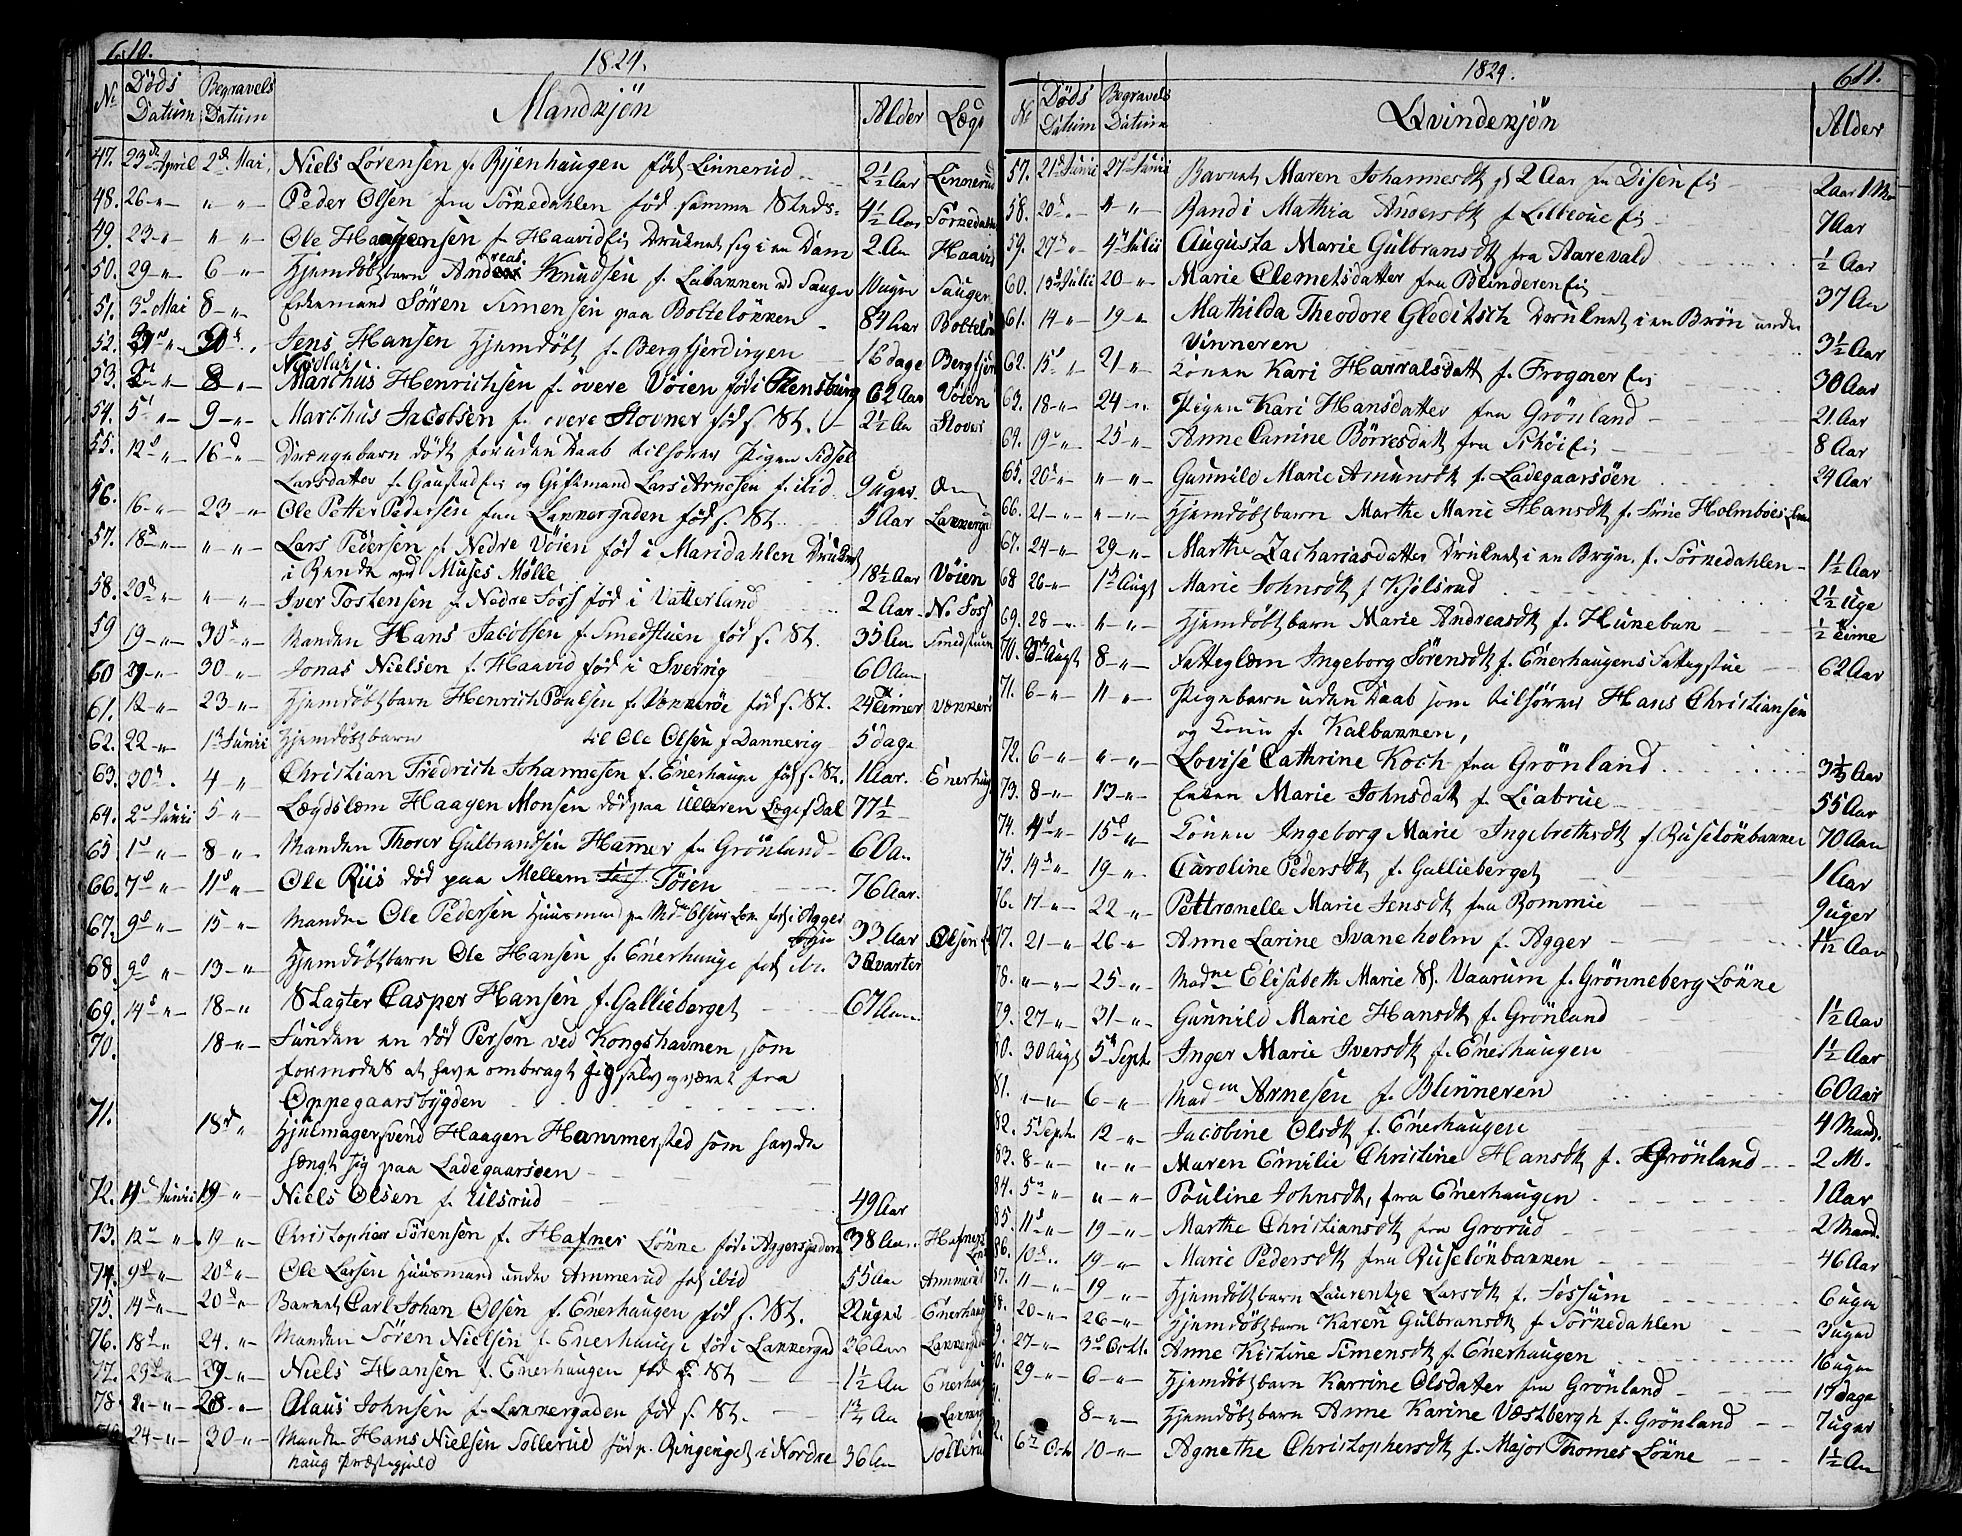 610.
1824.
No Döds Datum Begravels Datum Mandkjön Alder Lægd
47. 23de April 2d Mai Niels Lorensen f. Byenhaugen föd Linnerud 2½ Aar Linnerud
48. 26 " " " Peder Olsen fra Sörkedahlen föd samme Steds 4½ Aar Sörkedahlen
49. 23 " " " Ole Haagensen f. Haavid Eie Druknet sig i en Dam 2 Aar Haavid
50. 29 " 6 " Hjemdöbt barn Andreas Knudsen f. Labakken ved Sauger 10 uger Sauger
51. 3d Mai 8 " Enkemand Sören Simensen paa Bolteløkken 84 Aar Bolteløk
52. " 30 " Jens Hansen Hjemdöbt f. Berg fjerdingen 16 dage Bergfjer
53. " 8 " Marthus Henrichsen f. övere Vöien föd i Flensburg 62 Aar Vöien
54. 5 " 9 " Marthus Jacobsen f. övere Stovner föd s. St. 2½ Aar Stovner
55. 12d " 16d " Drængebarn dödt foruden Daab tilhörer Pigen Sidsel
Larsdatter f. Gaustad Eie og Gift mand Lars Arnesen f. ibid 9 Uger
56. 16 " 23 " Ole Petter Pedersen fra Lakkergaden föd s. St. 5 Aar Lakkerga
57. 18d " " " Lars Pedersen f. Nedre Vöien föd i Maridahlen Druknet
i Bande ved Muses Mölle 18½ Aar Vöien
58. 20d " " " Iver Tostensen f. Nedre Foss föd i Vatterland 2 Aar N. Foss
59 19 " 30d " Manden Hans Jacobsen f. Smedstuen föd s. St. 35 Aar Smedstuen
60 29 " 30 " Jonas Nielsen f. Haavid föd i Sverrig 60 Aar
61. 12 " 23 " Hjemdöbt barn Henrich Poulsen f. Vækkeröe föd s. St. 24 Timer Vækkerö
62. 22 " 1st Junii Hjemdöbt barn til Ole Olsen f. Dannevig 5 dage
63. 30d " 4 " Christian Friedrich Johannesen f. Enerhauge föd s. St. 1 Aar. Enerhaug
64. 2d Junii 5 " Lægdslem Haagen Monsen död paa Ulleren Lægd Dal 77½
65 1d " 8 " Manden Thorer Gulbrandsen Hamer fra Grönland 60 Aar
66. 7d " 11d " Ole Riis död paa Mellem Töien 76 Aar.
67. 9d " 15 " Manden Ole Pedersen Huusmand paa Olsens Løk föd i Agger 33 Aar Olsen
68. 9d " 13 " Hjemdöbt barn Ole Hansen f. Enerhauge föd ib. 3 Qvarter
69. 14d " 18 " Slagter Casper Hansen f. Gallieberget 67 Aar
70. 18 " Funden en död Person ved Kongshavnen, som
formodes at have ombragt sig selv og været fra
Oppegaarsbygden
71. 18d " Hjulmagersvend Haagen Hammersted som havde
hængt sig paa Ladegaarsöen
72. Junii 19 " Niels Olsen f. Ulsrud 49 Aar
73. 12 " 19 " Christopher Sörensen f. Hafners Lökke föd i Aggersgaden 38 Aar Hafners Løk
74. 9d " 20d " Ole Larsen Huusmand under Ammerud föd ibid 55 Aar Ammerud
75. 14d " 20d " Barnet Carl Johan Olsen f. Enerhaugen föd s. St. 22 uger Enerhaug
76. 18d " 24. " Manden Sören Nielsen f. Enerhauge föd i Lakkergad 36 Aar Lakkerga
77. 23d " 29 " Niels Hansen f. Enerhaugen föd s. St. 1½ Aar Enerhaug
78. " 28 " Claus Johnsen f. Lakkergaden föd s. St. 1¾ Aar Lakkerg
24 " 30 " Manden Hans Nielsen Tollerud föd p. Ringeriget i Nordre 36 Aar Tollerud
haug Præstegjeld
1824. 611.
No Döds Datum Begravels Datum Qvindekjön Alder
57. 21d Junii 27d Junii Barnet Maren Johannesdt 2 Aar fra Disen Eie 2 aar 1 M
58. 20d " " " Randi Mathia Andersdt f. Lilleoue Eie 7 Aar
59. 27d " 4d Julii Augusta Marie Gulbransdt fra Aarevald ½ Aar
60. 13d Julii 20 " Marie Clemetsdatter fra Blinderen Eie 37 Aar
61. 14 " 19 " Mathilda Theodore Gleditsch Druknet i en Brön under
Vinneren 3½ Aar
62. 15d " 21 " Konen Kari Harralsdatt f. Frogner Eie 30 Aar
63. 18 " 24 " Pigen Kari Hansdatter fra Grönland 21 Aar
64. 19d " 25 " Anne Carrine Börresdatt fra Schöi Eie 8 Aar
65. 20d " " " Gunnild Marie Amunsdt f. Ladegaarsöen 24 Aar
66. 21 " " " Hjemdöbt barn Marthe Marie Hansdt f. Frue Holmboes Løk
67. 24 " 29 " Marthe Zachariasdatter Druknet i en Bryn. f. Sörkedahlen 1½ Aar
68 26 " 1st Augt Marie Johnsdt f. Kjölsrud 2½ Uge
69. 28 " " " Hjemdöbt barn Marie Andreasdt f. Hunebæk ½ Time
70. Augt 8 " Fattiglem Ingeborg Sörensdt f. Enerhaugens Fattigstue 62 Aar
71. 6 " 11 " Pigebarn uden Daab som tilhörer Hans Christiansen
og Kone f. Kalbakken,
72. 6 " " " Lovise Cathrine Koch fra Grönland Aar
73. 8 " 13 " Enken Marie Johnsdatt f. Liabrue 55 Aar
74. 4d " 15d " Konen Ingeborg Marie Ingebrethsdt f. Ruseløkbakken 70 Aar
75. 14d " 19 " Caroline Pedersdt f. Gallieberget 1 Aar
76. 17 " 22 " Pettronelle Marie Jensdt fra Bommie 9 uger
77. 21 " 26 " Anne Larine Svaneholm f. Agger Aar
78. " " 25 " Madme Elisabeth Marie Sl. Vaarum f. Grönneberg Lökke
79. 27 " 31 " Gunnild Marie Hansdt f. Grönland 1½ Aar
80. 30 Augt 5d Sept. Inger Marie Iversdt f. Enerhaugen 1½ Aar
81. " " 6 " Madm Arnesen f. Blinneren 60 Aar
82. 5d Sept. 12 " Jacobine Olsdt f. Enerhaugen 4 Maad.
83. 8 " " " Maren Emilie Christine Hansdt f. Grönland 2 M.
84. 5 " " " Pouline Johnsdt, fra Enerhaugen 1 Aar
85. 11d " 19 " Marthe Christiansdt fra Grorud 2 Maad.
86. 10d " 19 " Marie Pedersdt fra Ruselökbakken 46 Aar
87. 11 " 19 " Hjemdöbt barn Laurentze Larsdt f. Fossum 6 uger
88. 20 " 26 " Hjemdöbt barn Karen Gulbransdt f. Sörkedahlen 3 uger
27 " 3d Octb. Anne Kistine Simensdt f. Enerhaugen 16 uger
29 " 6 " Hjemdöbt barn Karrine Olsdatter fra Grönland 17 dage
8 " Hjemdöbt barn Anne Karine Væstbergh f. Grönland 7 uger
6te Octb 10 " Agnethe Christophersdt f. Major Thomes Lökke 1½ Aar